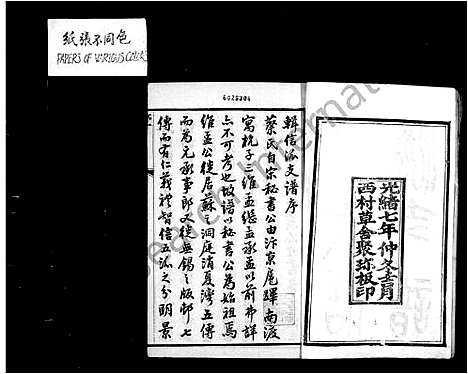 紙張不同色
PAPERS OF VARIOUS COLORS
6025304
光緒七年仲冬吉月
西村草舍聚珍板印
輯信派支譜序
蔡氏自宗秘書公由汴京扈蹕南渡
寓杭子三維孟繼孟承孟以前弗詳
亦不可考也故譜以秘書公為始祖焉
維孟公徙居蘇洞庭消夏灣五傳
而為元承事郎又徙無錫之版邨七
傳而有仁義禮智信五派之分明景